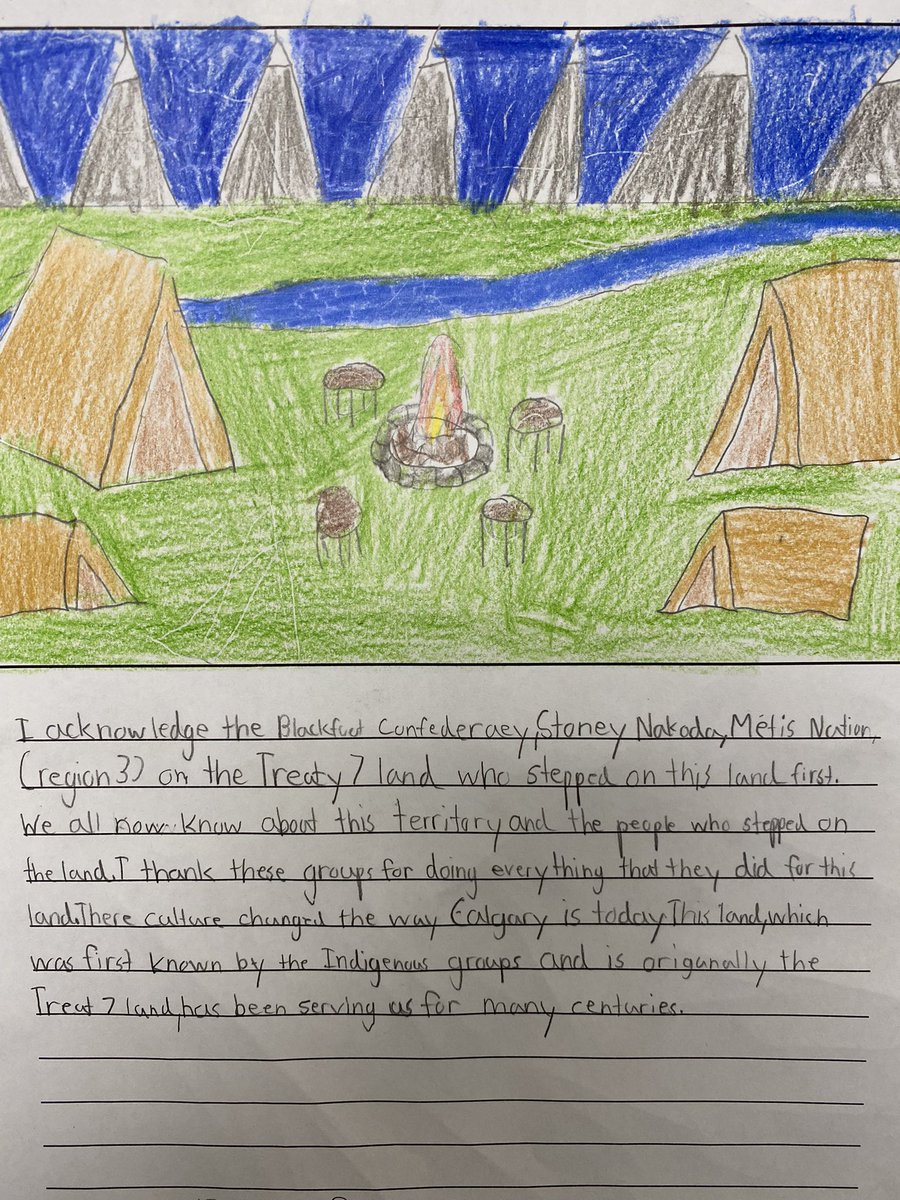 I acknowledge the Blackfoot Confederacy, Stoney Nakoda, Métis Nation,
(region 3) on the Treaty 7 land who stepped on this land first.
We all now know about this territory and the people who stepped on
the land. I thank these groups for doing everything that they did for this
land. There culture changed the way Calgary is today. This land, which
was first known by the Indigenous groups and is origanally the
Treat 7 land, has been serving us for many centuries.